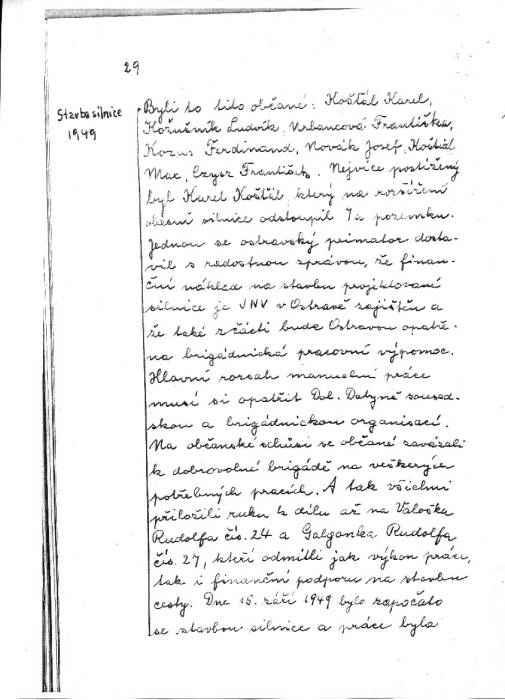 29
Stavba silnice
1949
Byli to tito občané: Koštál Karel,
Kožušník Ludvík, Urbancová Františka,
Kozus Ferdinand, Novák Josef, Koštál
Max, Czysz František. Nejvíce postižený
byl Karel Koštál, který na rozšíření
obecní silnice odstoupil 7a pozemku.
Jednou se ostravský primátor dosta-
vil s radostnou zprávou, že finan-
ční náklad na stavbu projektované
silnice je JNV v Ostravě zajištěn a
že také z části bude Ostravou opatře-
na brigádnická pracovní výpomoc.
Hlavní rozsah manuelní práce
musí si opatřit Dol. Datyně sousad-
skou a brigádnickou organisací.
Na občanské schůsi se občané zavázali
k dobrovolné brigádě na veškerých
potřebných pracích. A tak všichni
přiložili ruku k dílu až na Valoška
Rudolfa čís. 24 a Galganka Rudolfa
čís. 27, kteří odmítli jak výkon práce,
tak i finanční podporu na stavbu
cesty. Dne 15. září 1949 bylo započato
se stavbou silnice a práce byla